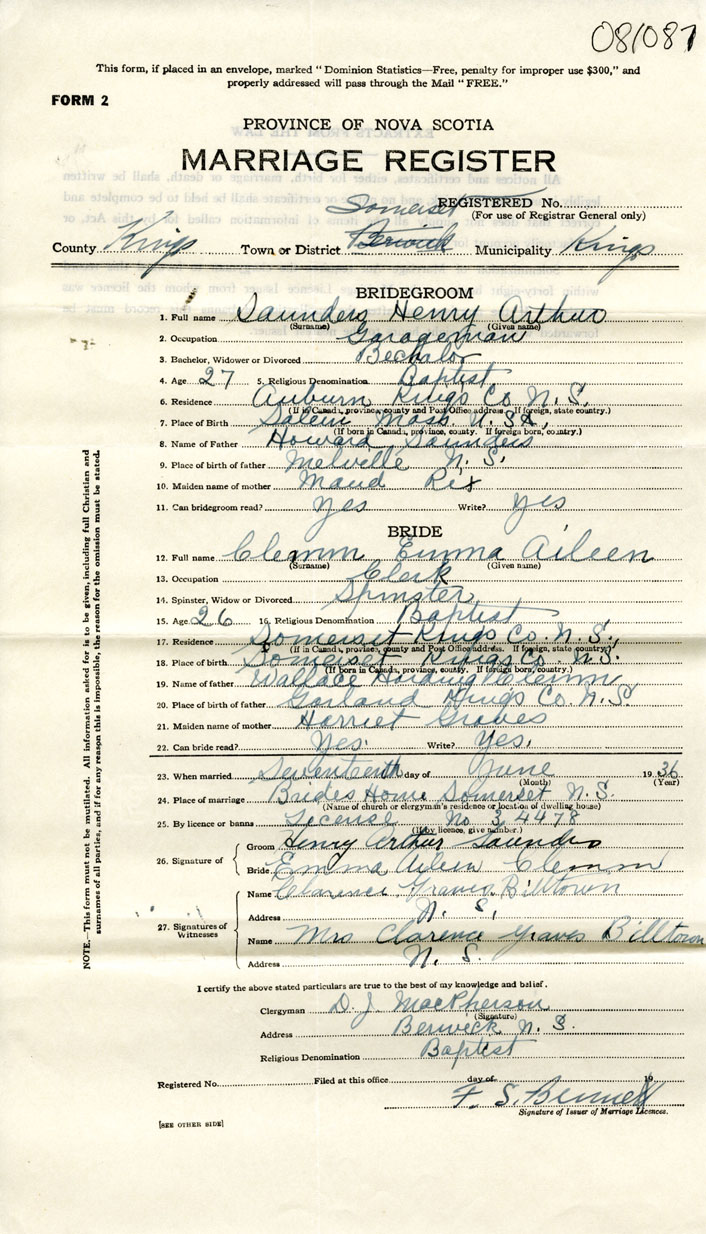 081087
This form, if placed in an envelope, marked "Dominion Statistics—Free, penalty for improper use $300," and
properly addressed will pass through the Mail "FREE."
FORM 2
PROVINCE OF NOVA SCOTIA
MARRIAGE REGISTER
Somerset REGISTERED No.
(For use of Registrar General only)
County Kings Town or District Berwick Municipality Kings
BRIDEGROOM
1. Full name Saunders Henry Arthur
(Surname) (Given name)
2. Occupation Garageman
3. Bachelor, Widower or Divorced Bechalor
4. Age 27 5. Religious Denomination Baptist
6. Residence Auburn Kings Co. N.S.
(If in Canada, province, county and Post Office address. If foreign, state country.)
7. Place of Birth Salem Mass. U.S.A.
(If born in Canada, province, county. If foreign born, country.)
8. Name of Father Howard Saunders
9. Place of birth of father Melville N.S.
10. Maiden name of mother Maud Rix
11. Can bridegroom read? Yes Write? Yes
BRIDE
12. Full name Clemm Emma Aileen
(Surname) (Given name)
13. Occupation Clerk
14. Spinster, Widow or Divorced Spinster
15. Age 26 16. Religious Denomination Baptist
17. Residence Somerset Kings Co. N.S.
(If in Canada, province, county and Post Office address. If foreign, state country)
18. Place of birth Somerset Kings Co. N.S.
(If born in Canada, province, county. If foreign born, country.)
19. Name of father Wallace Harding Clemm
20. Place of birth of father Garland Kings Co. N.S.
21. Maiden name of mother Harriet Graves
22. Can bride read? Yes. Write? Yes.
23. When married Seventeenth day of June 1936
(Month) (Year)
24. Place of marriage Brides Home Somerset N.S.
(Name of church or clergyman's residence or location of dwelling house)
25. By licence or banns License No 34478
(If by licence, give number.)
26. Signature of
Groom Henry Arthur Saunders
Bride Emma Aileen Clemm
27. Signatures of Witnesses
Name Clarence Graves Billtown
Address N. S.
Name Mrs Clarence Graves Billtown
Address N. S.
I certify the above stated particulars are true to the best of my knowledge and belief.
Clergyman D. J. MacPherson
(Signature)
Address Berwick N. S.
Religious Denomination Baptist
Registered No. Filed at this office day of 19
F. S. Bennett
Signature of Issuer of Marriage Licences.
[SEE OTHER SIDE]
NOTE.—This form must not be mutilated. All information asked for is to be given, including full Christian and
surnames of all parties, and if for any reason this is impossible, the reason for the omission must be stated.